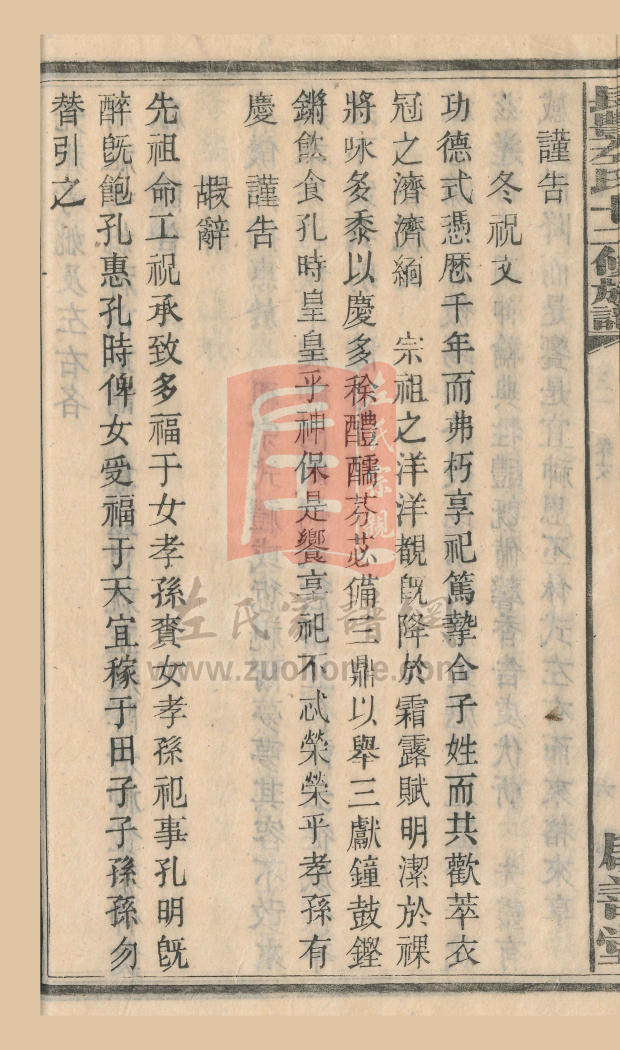 謹告
冬祝文
功德式憑厯千年而弗朽享祀篤摯合子姓而共歡萃衣
冠之濟濟緬 宗祖之洋洋覩旣降於霜露賦明潔於祼
將咏多黍以慶多稌醴醹芬苾備三鼎以舉三獻鐘鼓鏗
鏘飲食孔時皇皇乎神保是饗享祀不忒榮榮乎孝孫有
慶謹告
嘏辭
先祖命工祝承致多福于女孝孫賚女孝孫祀事孔明旣
醉旣飽孔惠孔時俾女受福于天宜稼于田子子孫孫勿
替引之
左氏十二修族譜
左氏宗親
左氏家譜網
www.zuohome.com